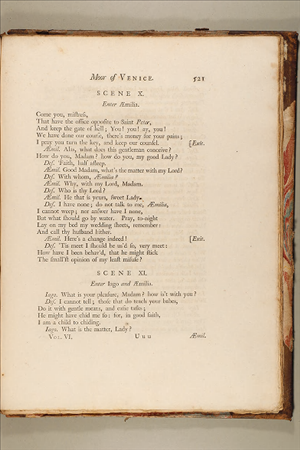 Moor of VENICE. 521
SCENE X.
Enter Æmilia.
Come you, mistress,
That have the office opposite to Saint Peter,
And keep the gate of hell; You! you! ay, you!
We have done our course, there's money for your pains;
I pray you turn the key, and keep our counsel. [Exit.
Æmil. Alas, what does this gentleman conceive?
How do you, Madam? how do you, my good Lady?
Des. 'Faith, half asleep.
Æmil. Good Madam, what's the matter with my Lord?
Des. With whom, Æmilia?
Æmil. Why, with my Lord, Madam.
Des. Who is thy Lord?
Æmil. He that is yours, sweet Lady.
Des. I have none; do not talk to me, Æmilia,
I cannot weep; nor answer have I none,
But what should go by water. Pray, to-night
Lay on my bed my wedding sheets, remember:
And call thy husband hither.
Æmil. Here's a change indeed! [Exit.
Des. 'Tis meet I should be us'd so, very meet:
How have I been behav'd, that he might stick
The small'st opinion of my least misuse?
SCENE XI.
Enter Iago and Æmilia.
Iago. What is your pleasure, Madam? how is't with you?
Des. I cannot tell; those that do teach your babes,
Do it with gentle means, and easie tasks;
He might have chid me so: for, in good faith,
I am a child to chiding.
Iago. What is the matter, Lady?
VOL. VI. Uuu Æmil.